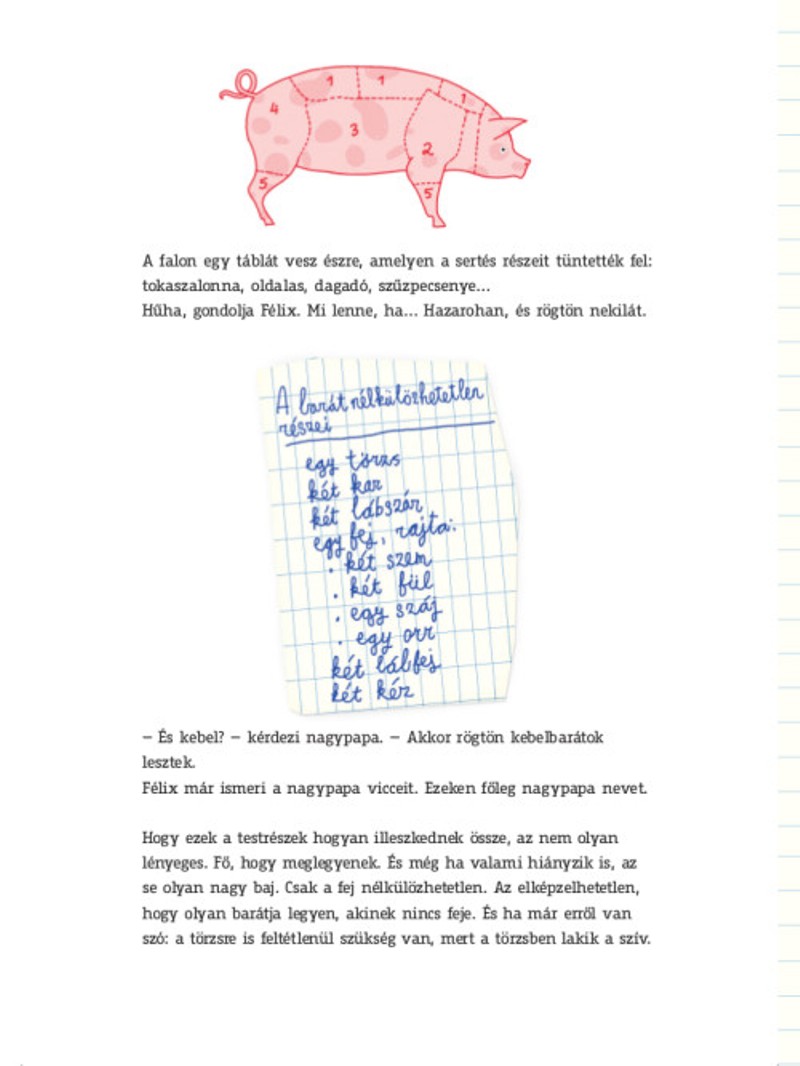 1 1 1
4 3 2
5 5
A falon egy táblát vesz észre, amelyen a sertés részeit tüntették fel:
tokaszalonna, oldalas, dagadó, szűzpecsenye...
Hűha, gondolja Félix. Mi lenne, ha... Hazarohan, és rögtön nekilát.
A barát nélkülözhetetlen
részei
egy törzs
két kar
két lábszár
egy fej, rajta:
. két szem
. két fül
. egy száj
. egy orr
két lábfej
két kéz
– És kebel? – kérdezi nagypapa. – Akkor rögtön kebelbarátok
lesztek.
Félix már ismeri a nagypapa vicceit. Ezeken főleg nagypapa nevet.
Hogy ezek a testrészek hogyan illeszkednek össze, az nem olyan
lényeges. Fő, hogy meglegyenek. És még ha valami hiányzik is, az
se olyan nagy baj. Csak a fej nélkülözhetetlen. Az elképzelhetetlen,
hogy olyan barátja legyen, akinek nincs feje. És ha már erről van
szó: a törzsre is feltétlenül szükség van, mert a törzsben lakik a szív.